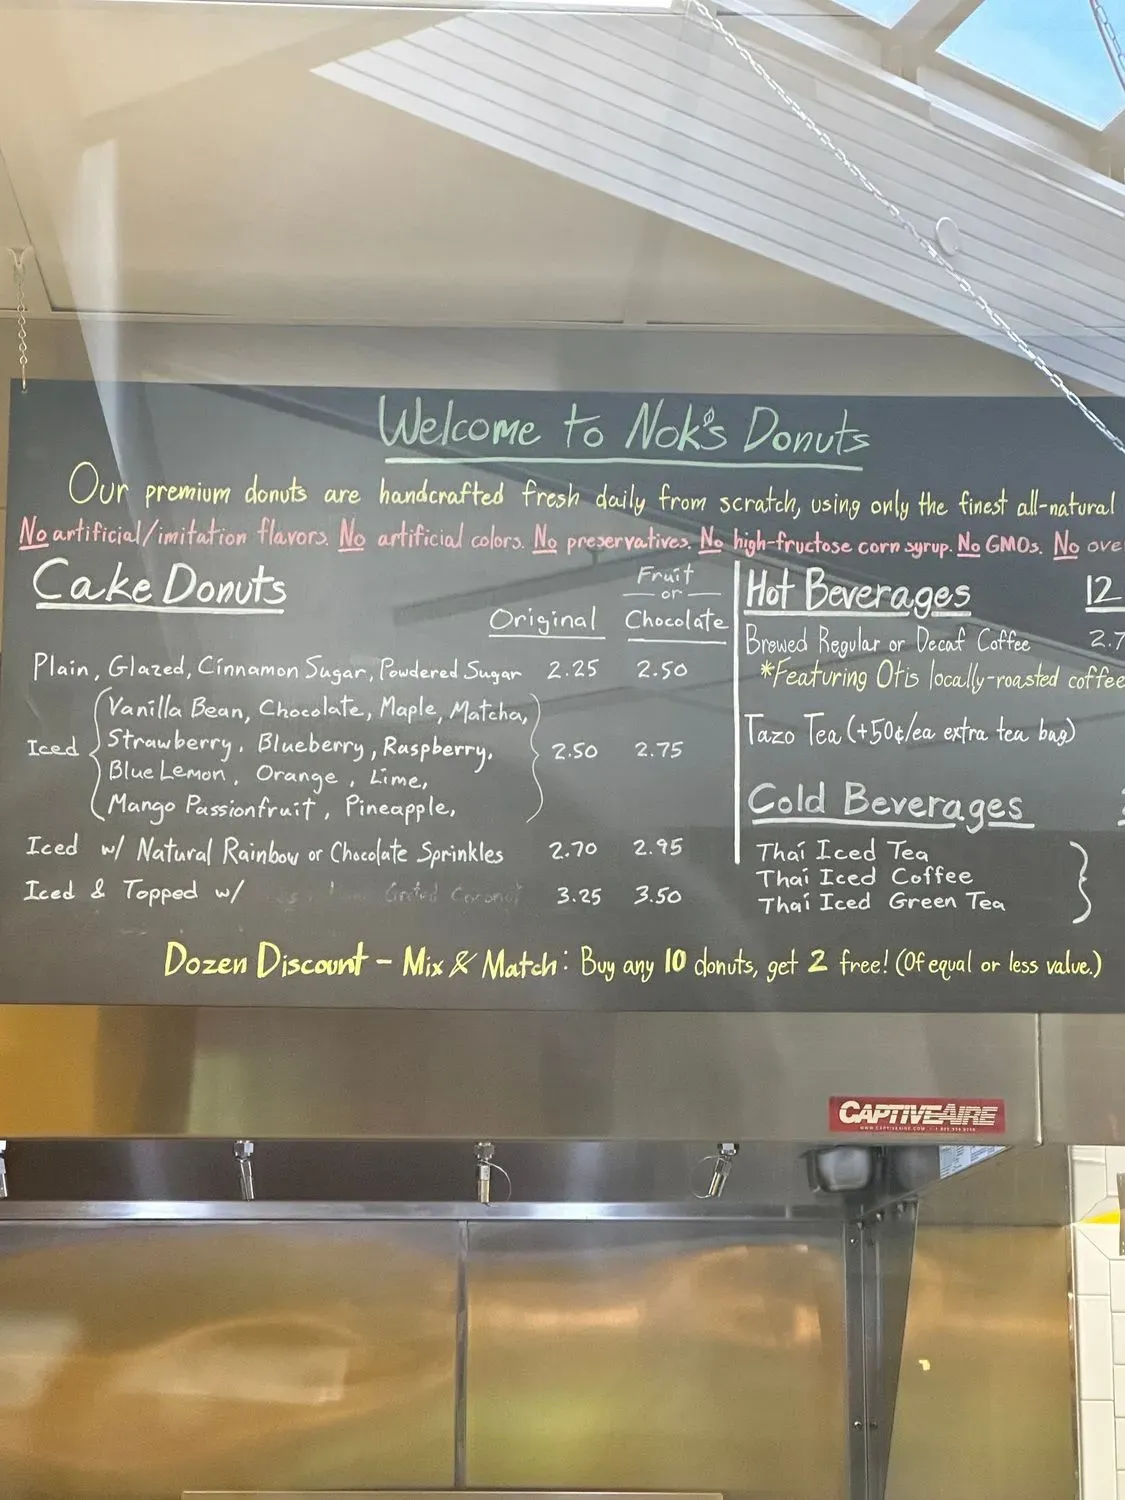 Welcome to Nok's Donuts
Our premium donuts are handcrafted fresh daily from scratch, using only the finest all-natural
No artificial/imitation flavors. No artificial colors. No preservatives. No high-fructose corn syrup. No GMOs. No
Cake Donuts
Original
Fruit
or
Chocolate
Plain, Glazed, Cinnamon Sugar, Powdered Sugar 2.25 2.50
Vanilla Bean, Chocolate, Maple, Matcha,
Iced Strawberry, Blueberry, Raspberry, 2.50 2.75
Blue Lemon, Orange, Lime,
Mango Passionfruit, Pineapple,
Iced w/ Natural Rainbow or Chocolate Sprinkles 2.70 2.95
Iced & Topped w/ 3.25 3.50
Hot Beverages 12
Brewed Regular or Decaf Coffee
*Featuring Otis locally-roasted coffee
Tazo Tea (+50¢/ea extra tea bag)
Cold Beverages
Thai Iced Tea
Thai Iced Coffee
Thai Iced Green Tea
Dozen Discount - Mix & Match: Buy any 10 donuts, get 2 free! (Of equal or less value.)
CAPTIVEAIRE